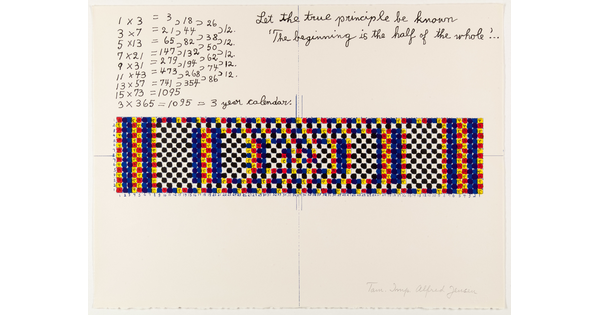 1 × 3 = 3 18 26
3 × 7 = 21 44 12.
5 × 13 = 65 82 38 12.
7 × 21 = 147 132 50 12.
9 × 31 = 279 194 62 12.
11 × 43 = 473 268 74 12.
13 × 57 = 741 354 86
15 × 73 = 1095
3 × 365 = 1095 = 3 year calendar.
Let the true principle be known
'The beginning is the half of the whole'...
Alfred Jensen